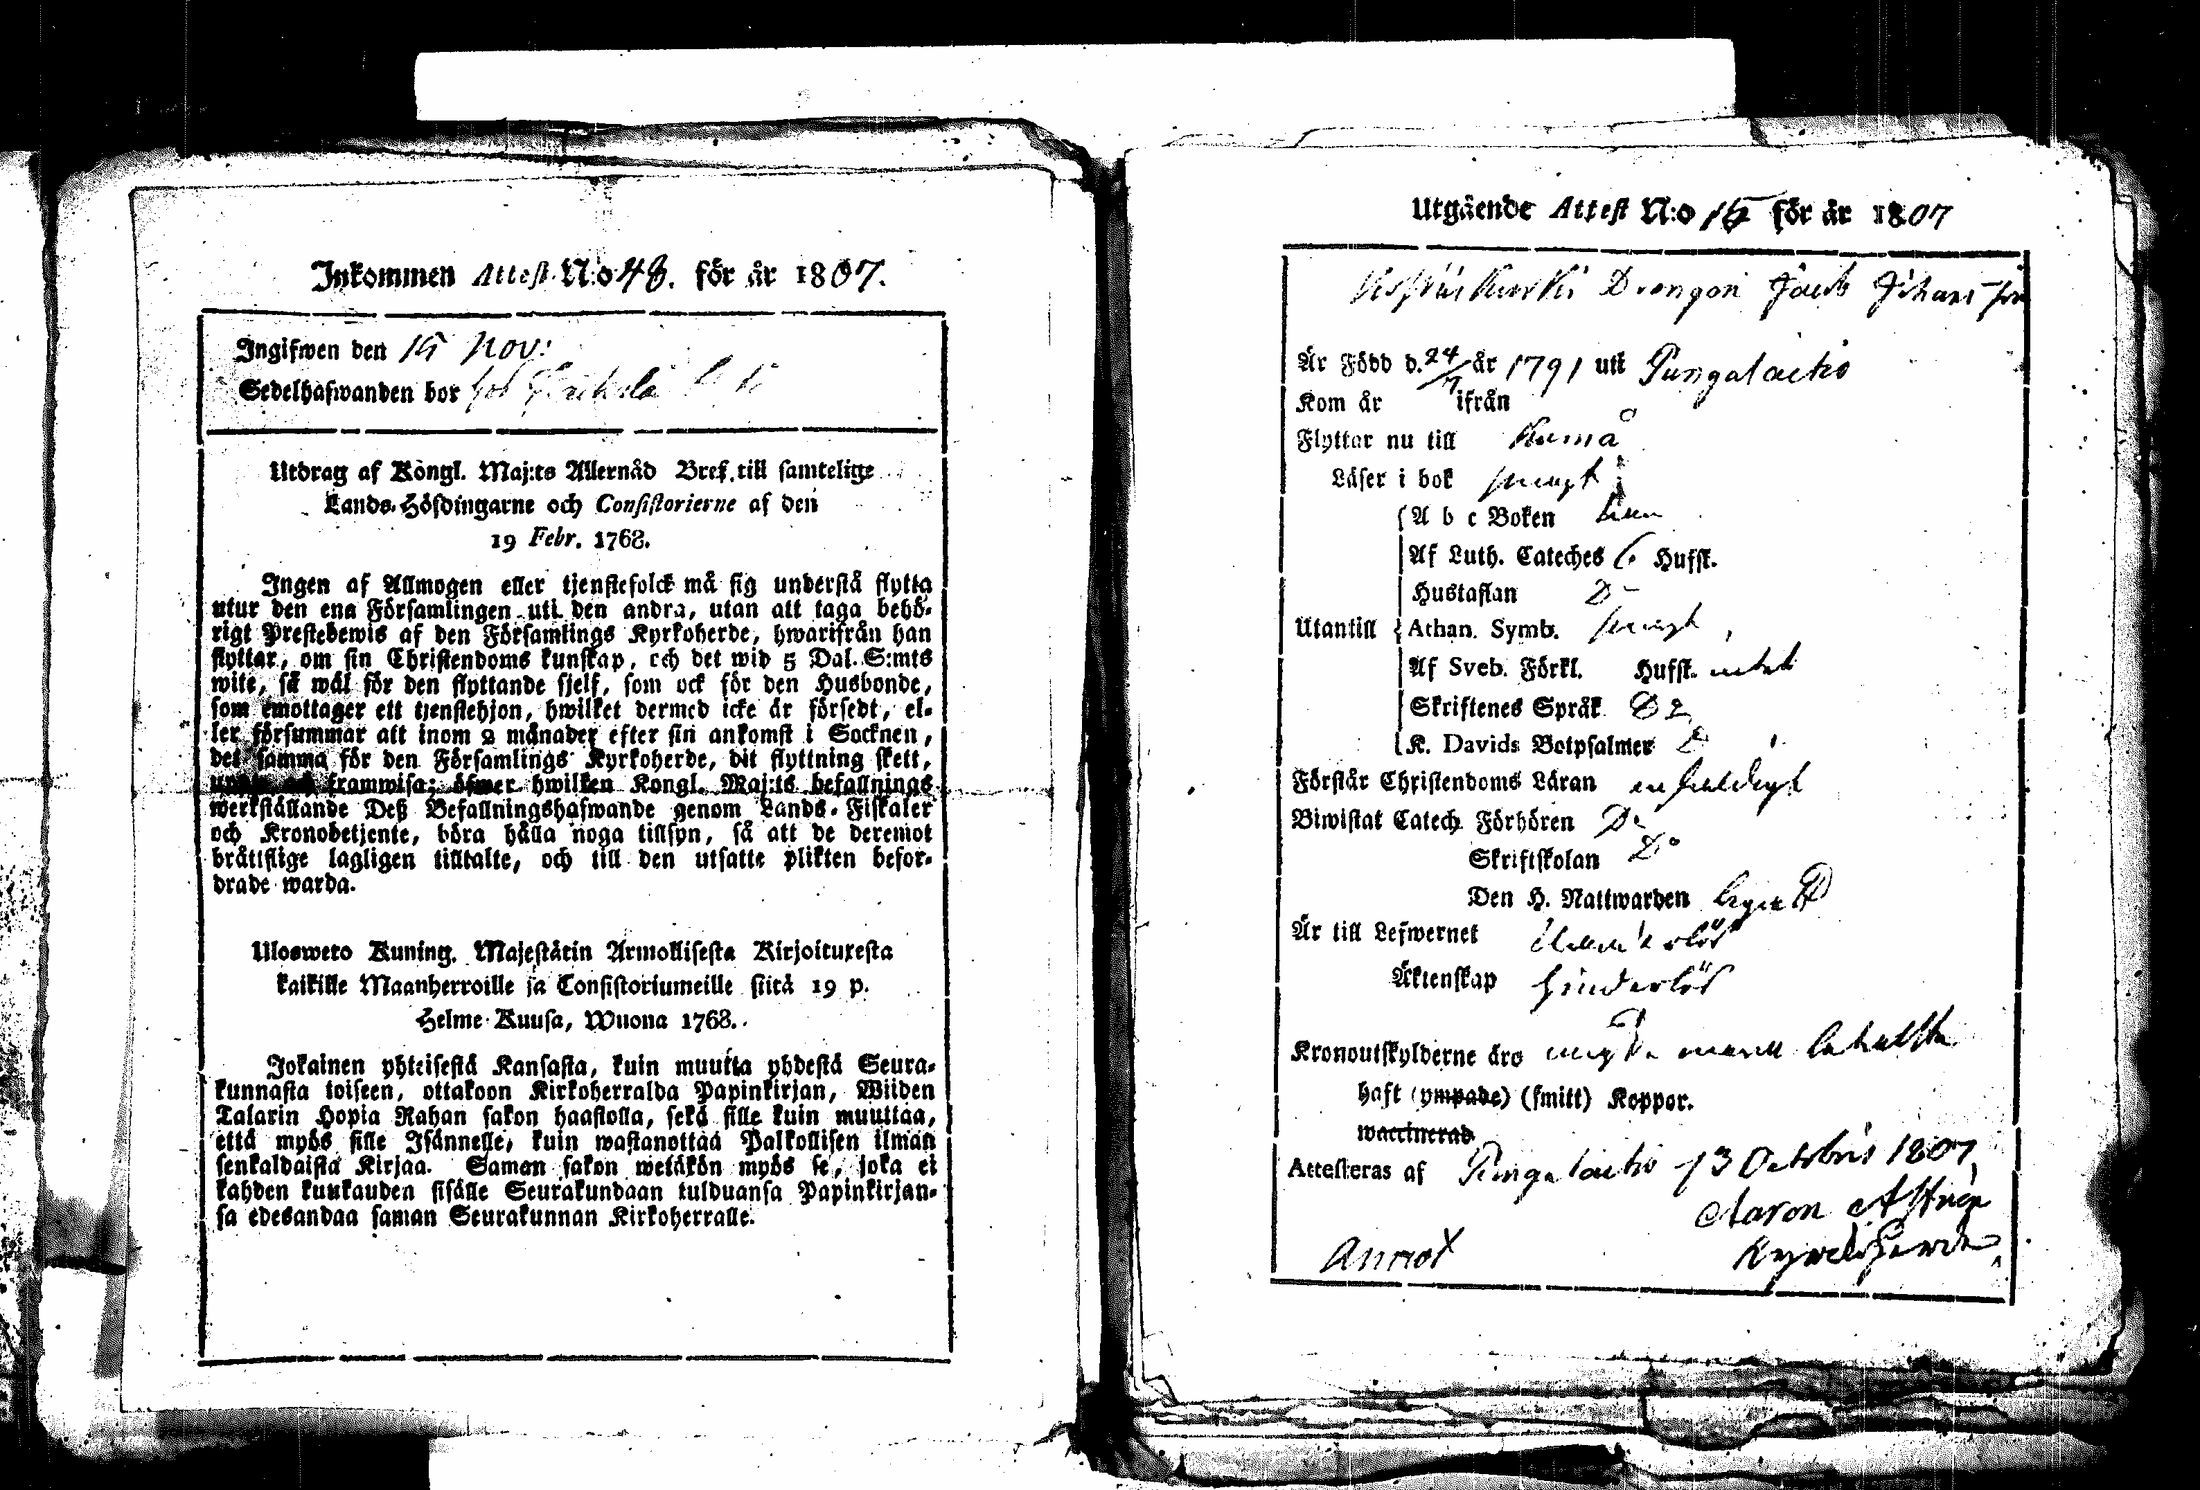 Inkommen Attest N:o 48. för år 1807.
Ingifwen den 15 Nov:
Sedelhafwanden bor hos
Utdrag af Kongl. Maj:ts Allernåd Bref till samtelige
Lands-Höfdingarne och Consistorierne af den
19 Febr. 1768.
Ingen af Allmogen eller tjenstefolck må sig understå flytta
utur den ena Församlingen uti den andra, utan att taga behö-
rigt Prestebewis af den Församlings Kyrkoherde, hwarifrån han
flyttar, om sin Christendoms kunskap, och det wid 5 Dal. S:mts
wite, så wäl för den flyttande sjelf, som ock för den Husbonde,
som emottager ett tjenstehjon, hwilket dermed icke är försedt, el-
ler försummar att inom 2 månader efter sin ankomst i Socknen,
det samma för den Församlings Kyrkoherde, dit flyttning skett,
framwisa; öfwer hwilken Kongl. Maj:ts befallnings
werkställande Deß Befallningshafwande genom Lands-Fiskaler
och Kronobetjente, böra hålla noga tillsyn, så att de deremot
bråttslige lagligen tilltalte, och till den utsatte plikten befor-
drade warda.
Ulosweto Kuning. Majestätin Armollisesta Kirjoituxesta
kaikille Maanherroille ja Consistoriumeille siitä 19 p.
Helme-Kuusa, Wuona 1768.
Jokainen yhteisestä Kansasta, kuin muutta yhdestä Seura-
kunnasta toiseen, ottakoon Kirkoherralda Papinkirjan, Wiiden
Talarin Hopia Rahan sakon haastolla, sekä sille kuin muuttaa,
että myös sille Isännelle, kuin wastanottaa Palkollisen ilman
senkaldaista Kirjaa. Saman sakon wetäkön myös se, joka ei
kahden kuukauden sisälle Seurakundaan tulduansa Papinkirjan-
sa edesandaa saman Seurakunnan Kirkoherralle.
Utgående Attest N:o 15 för år 1807
Drengen Jacob Johansson
Är Född d. 24/7 år 1791 uti Pungalaitio
Kom år ifrån
Flyttar nu till Kumå
Läser i bok swagt
A b c Boken
Af Luth. Cateches 6 Hufst.
Hustaflan D:o
Utantill Athan. Symb. swagt
Af Sveb. Förkl. Hufst. intet
Skriftenes Språk D:o
K. Davids Botpsalmer D:o
Förstår Christendoms Läran enfaldigt
Biwistat Catech. Förhören D:o
Skriftskolan D:o
Den H. Nattwarden
Är till Lefwernet
Äktenskap hinderlös
Kronoutskylderne äro
haft (ympade) (smitt) Koppor.
waccinerad
Attesteras af Pungalaitio 13 Octobris 1807
Aaron
Kyrckoherde
Annot